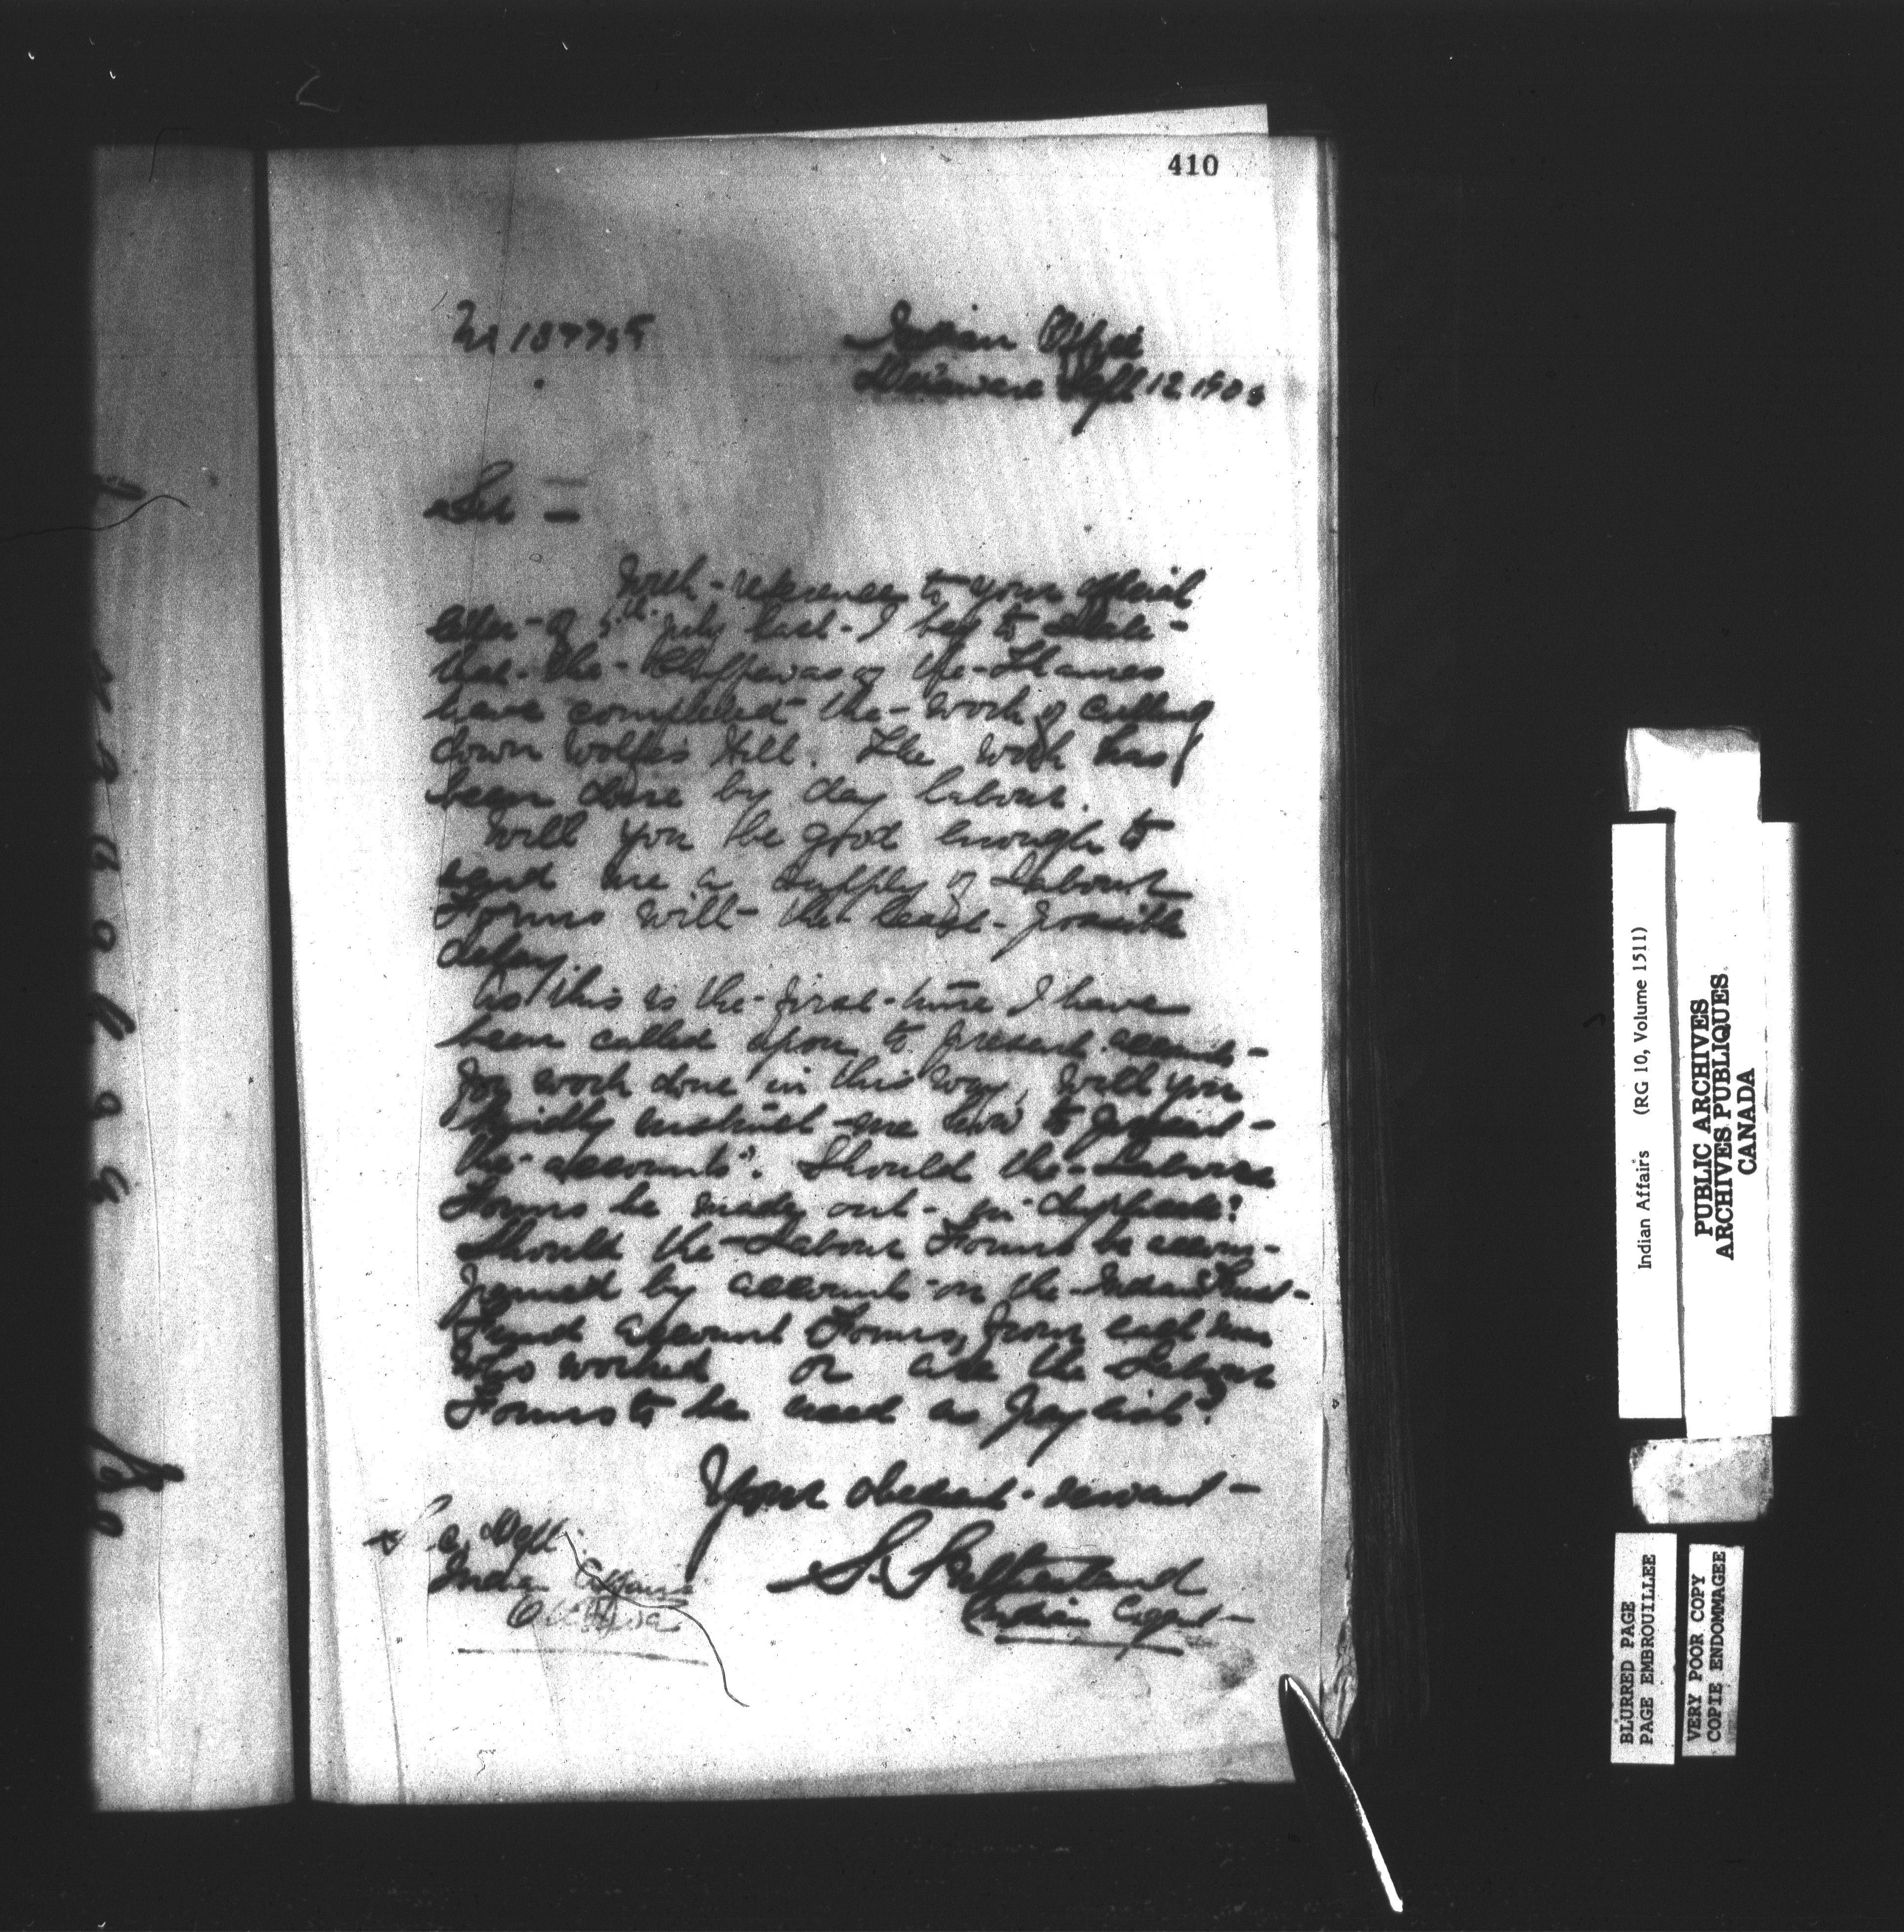 410
Indian Office
Delaware Sept 12 190
Sir =
With reference to your official
letter of 5th July last I beg to state
that the Chippewas of the Thames
have completed the work of cutting
down Wolfe's Hill. The work has
been done by day labour.
Will you be good enough to
send me a supply of Labour
Forms with the least possible
delay.
As this is the first time I have
been called upon to present accounts
for work done in this way, will you
kindly instruct me how to present
the accounts. Should the Labour
Forms be made out in duplicate?
Should the Labour Forms be accom-
panied by account on the Indian Trust
Fund account Forms, from each man
who worked or are the Labour
Forms to be used as paylist?
Your obedient servant
S. Sutherland
Indian Agent
Dept.
Indian Affairs
Ottawa
Indian Affairs (RG 10, Volume 1511)
PUBLIC ARCHIVES
ARCHIVES PUBLIQUES
CANADA
BLURRED PAGE
PAGE EMBROUILLEE
VERY POOR COPY
COPIE ENDOMMAGEE